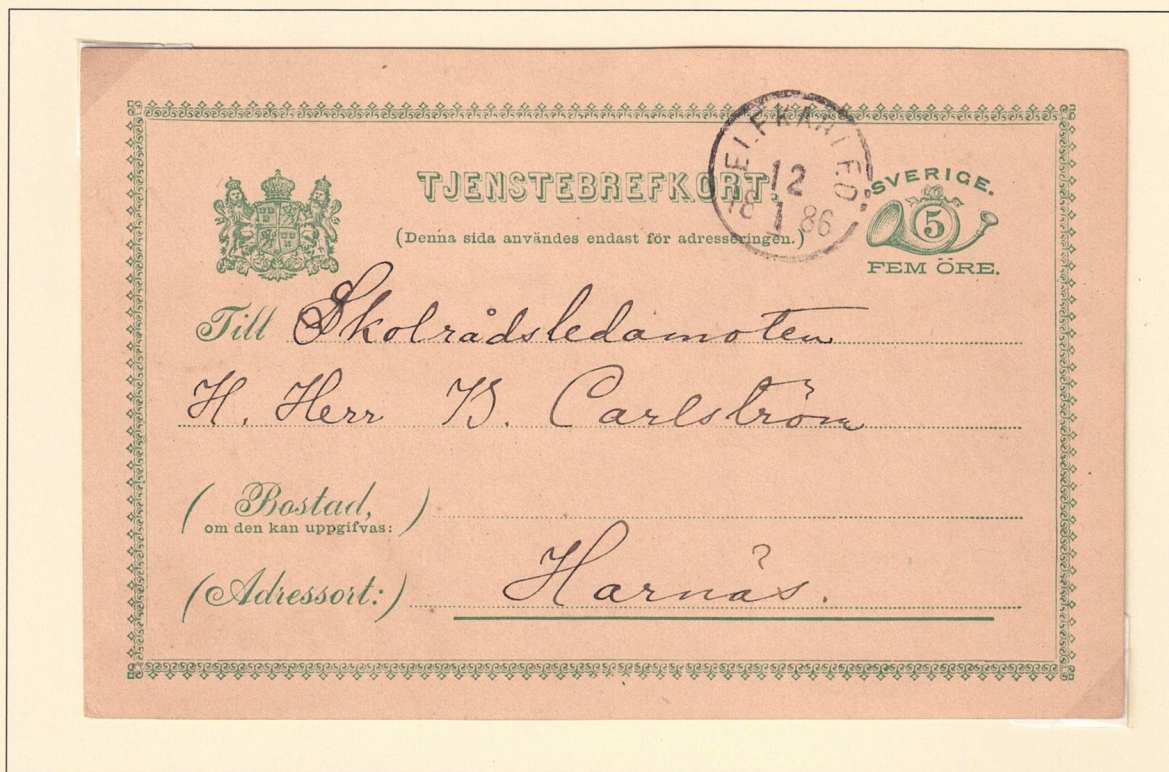 TJENSTEBREFKORT.
(Denna sida användes endast för adresseringen.)
ELFKARLEÖ
12
1
18 86
SVERIGE.
5
FEM ÖRE.
Till Skolrådsledamoten
H. Herr B. Carlström
(Bostad,
om den kan uppgifvas:)
(Adressort:) Harnäs.